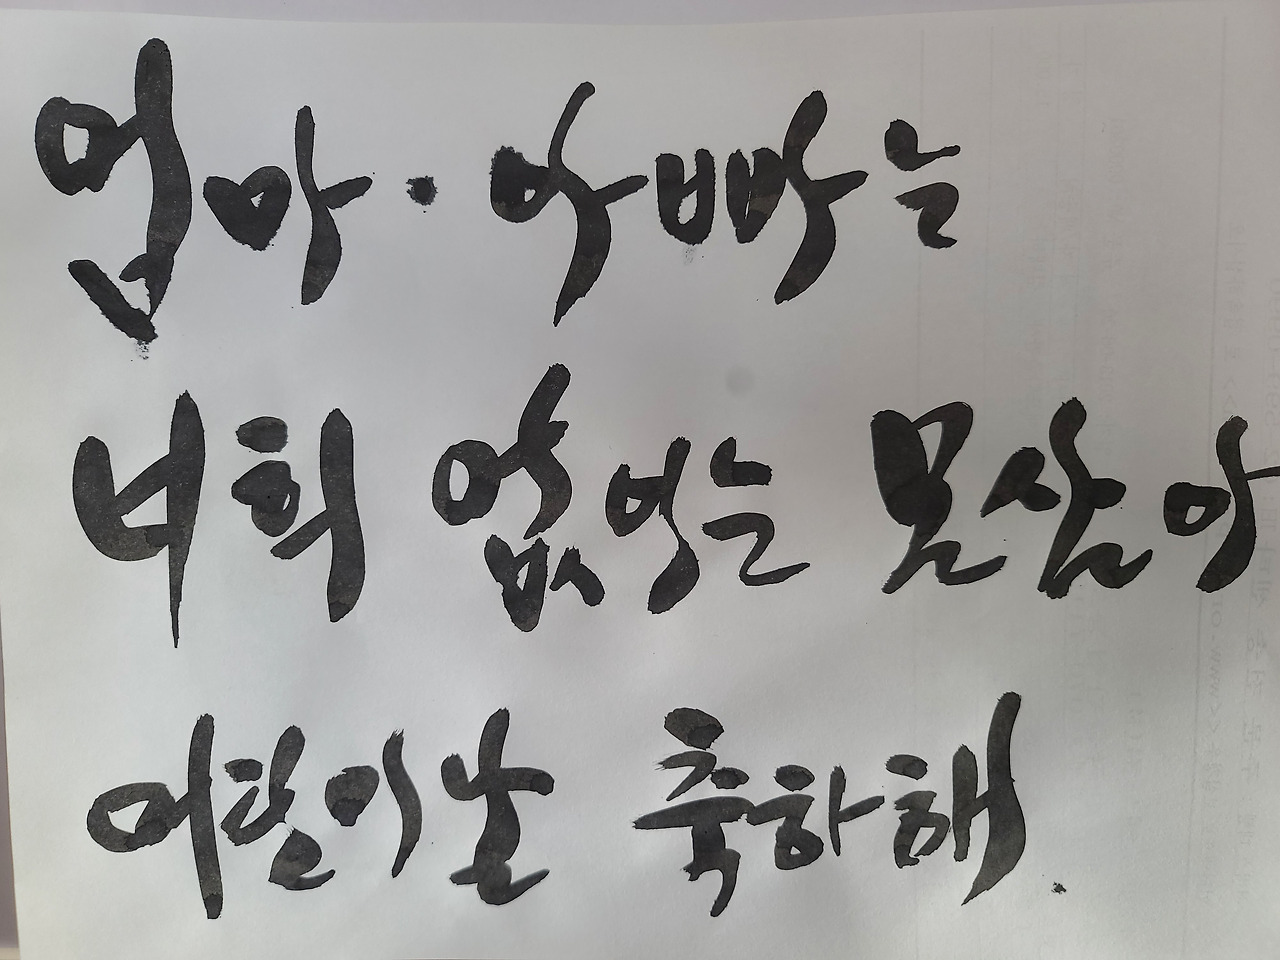 엄마·아빠는
너희 없이는 못살아
어린이날 축하해.